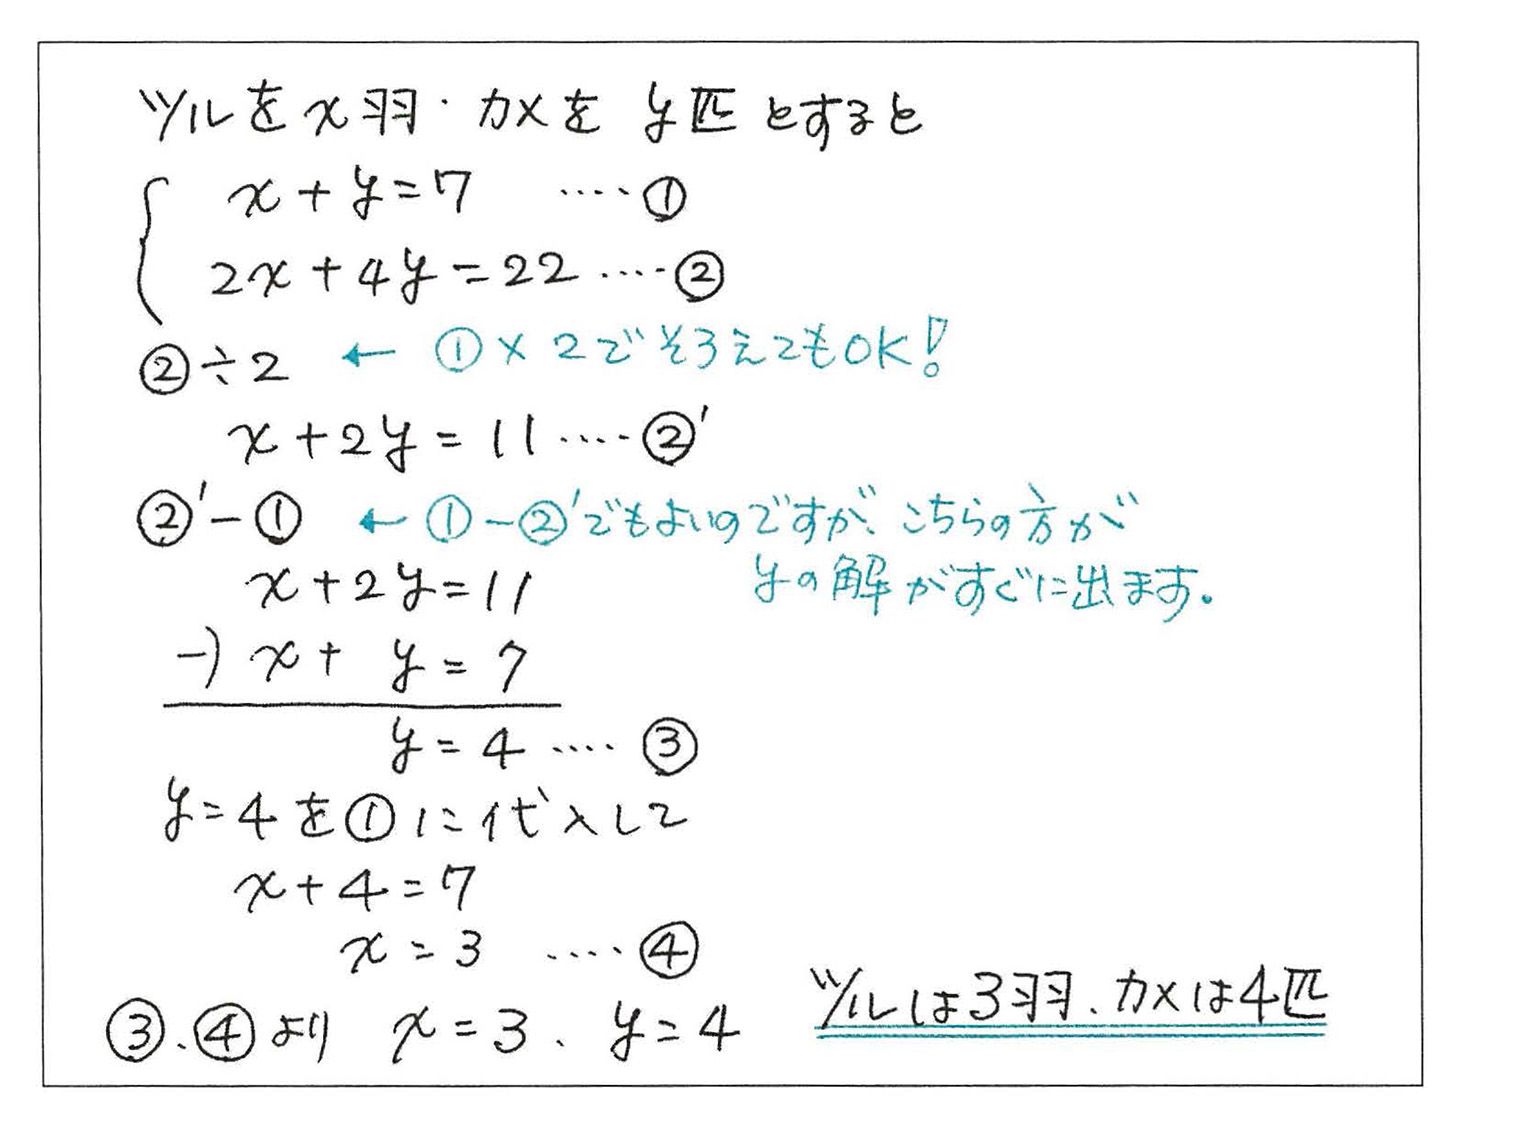 ツルをx羽・カメをy匹とすると
x+y=7 ‥‥①
2x+4y=22 ‥‥②
②÷2 ← ①×2でそろえてもOK!
x+2y=11 ‥‥②'
②'-① ← ①-②'でもよいのですが、こちらの方が
yの解がすぐに出ます。
x+2y=11
-) x+ y=7
y=4 ‥‥③
y=4を①に代入して
x+4=7
x=3 ‥‥④
③、④より x=3、y=4
ツルは3羽、カメは4匹